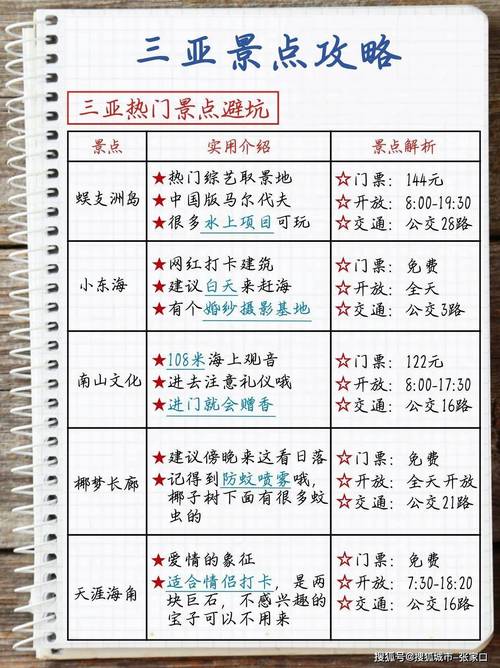 三亚景点攻略
三亚热门景点避坑
景点 实用介绍 景点解析
蜈支洲岛
★热门综艺取景地
★中国版马尔代夫
★很多水上项目可玩
☆门票：144元
☆开放：8:00-19:30
☆交通：公交28路
小东海
★网红打卡建筑
★建议白天来赶海
★有个婚纱摄影基地
☆门票：免费
☆开放：全天
☆交通：公交3路
南山文化
★108米海上观音
★进去注意礼仪哦
★进门就会赠香
☆门票：122元
☆开放：8:00-17:30
☆交通：公交16路
椰梦长廊
★建议傍晚来这看日落
★记得到防蚊喷雾哦，
椰子树下面有很多蚊
虫的
☆门票：免费
☆开放：全天开放
☆交通：公交21路
天涯海角
★爱情的象征
★适合情侣打卡，是两
块巨石，不感兴趣的
宝子可以不用来
☆门票：免费
☆开放：7:30-18:20
☆交通：公交16路
搜狐号@搜狐城市-张家口